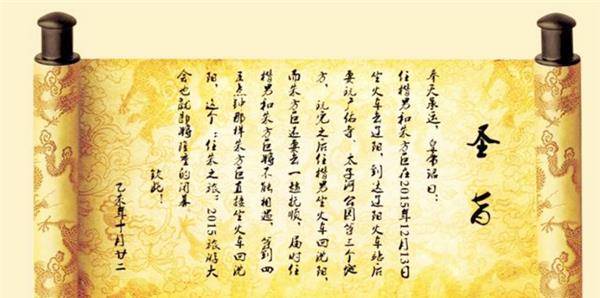 圣旨
奉天承运，皇帝诏曰：
任楷男和朱方巨在2015年12月13日
坐火车去辽阳，到达辽阳火车站后
要玩广佑寺、太子河公园等三个地
方，玩完之后任楷男坐火车回沈阳，
而朱方巨还要去一趟抚顺，届时任
楷男和朱方巨将不能相遇，等到四
五点钟那样朱方巨直接坐火车回沈
阳，这个：任朱之旅：2015旅游大
会也就即将隆重的闭幕
钦此！
乙未年十月廿二